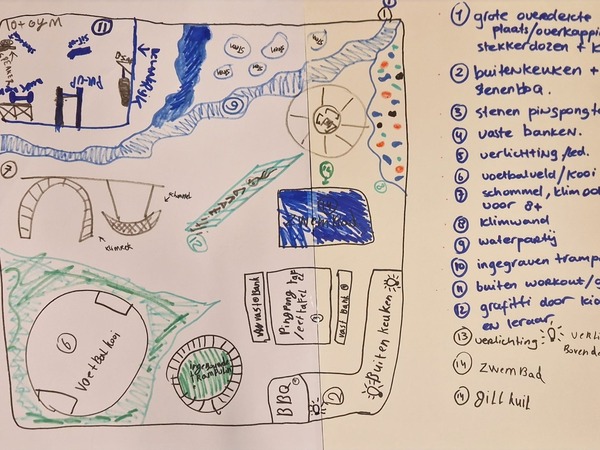 ⑪
SIT-UP
PULL-UP
Steen
Steen
Steen
Steen
⑨
⑦
schommel
klimrek
⑧
⑭
⑫
⑥
Voetbal kooi
ingegraven
trampoline
vaste Bank
Pingpong taf
/eettafel
vast Bank
Buiten keuken
BBQ
②
① grote overdekte
plaats/overkappi
stekkerdozen +
② buitenkeuken +
stenen bbq.
③ stenen pingpongta
④ vaste banken.
⑤ verlichting/led.
⑥ voetbalveld/kooi
⑦ schommel, klim
voor 8+
⑧ klimwand
⑨ waterpartij
⑩ ingegraven trampo
⑪ buiten workout/g
⑫ grafitti door
en leraar,
⑬ verlichting verli
Bovende
⑭ zwemBad
⑭ gill kuil